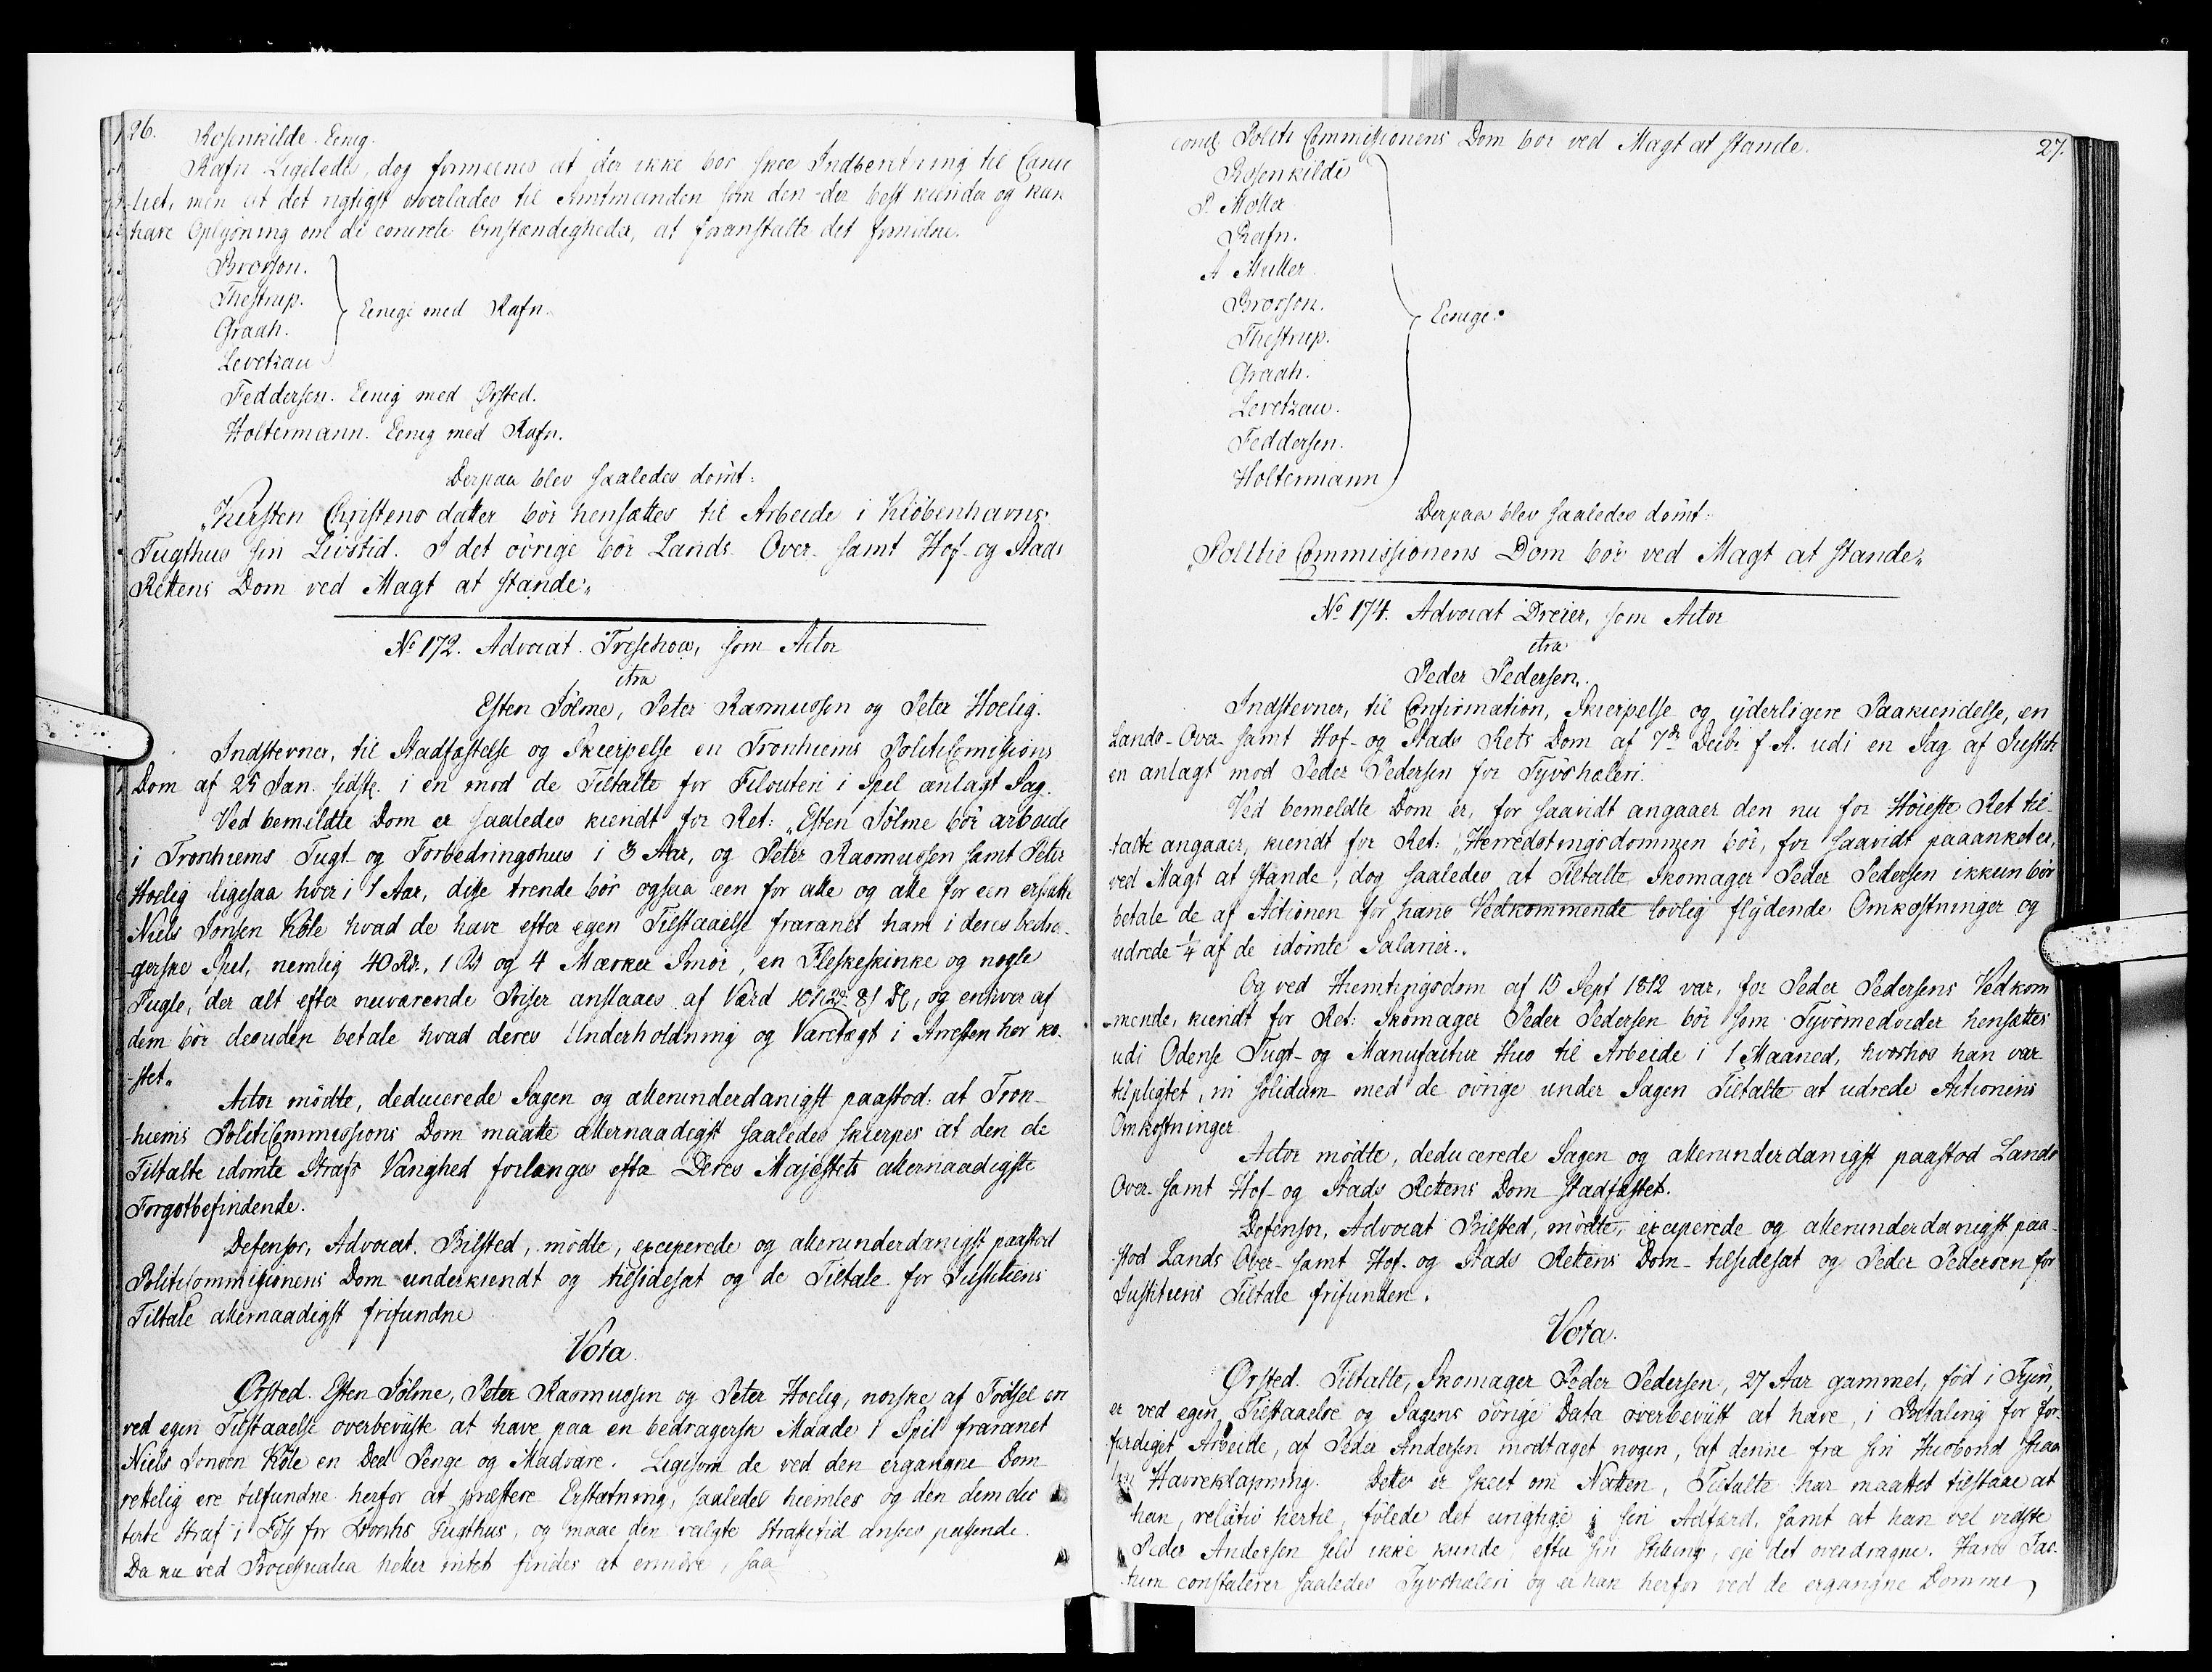 26.
Rosenkilde. Eenig.
Rafn Ligeledes, dog formeenes at der ikke bør skee Indberetning til Cancel-
liet, men at det rigtigst overlades til Amtmanden som den der best kiender og kan
have Oplysning om de concrete Omstændigheder, at foranstalte det fornødne.
Brorson.
Thestrup.
Graah.
Levetzau
Eenige med Rafn.
Feddersen. Eenig med Ørsted.
Holtermann. Eenig med Rafn.
Derpaa blev saaledes dømt:
„Kirsten Christensdatter bör hensættes til Arbeide i Kiöbenhavns
Tugthus sin Livstid. I det övrige bör Lands- Over- samt Hof- og Stads
Rettens Dom ved Magt at stande„
No 172. Advocat Treschow, som Actor
ctra
Esten Sölme, Peter Rasmussen og Peter Hoelig.
Indstevner, til Stadfæstelse og Skierpelse en Tronhiems PolitiCommissions
Dom af 25 Jan. sidstl. i en mod de Tiltalte for Filouteri i Spel anlagt Sag.
Ved bemeldte Dom er saaledes kiendt for Ret: „Esten Sölme bör arbeide
i Tronhiems Tugt- og Forbedringshus i 3 Aar, og Peter Rasmussen samt Peter
Hoelig ligesaa hver i 1 Aar, disse trende bör ogsaa een for alle og alle for een erstatte
Niels Jonsen Köle hvad de have efter egen Tilstaaelse fravanet ham i deres bedra-
gerske Spel, nemlig 40 Rd., 1 Pd og 4 Mærker Smör, en Fleskeskinke og nogle
Fugle, der alt efter nuværende Priser ansaaes af Værd og enhver af
dem bör desuden betale hvad deres Underholdning og Varetægt i Arresten har ko-
stet„
Actor mödte, deducerede Sagen og allerunderdanigst paastod: at Tron-
hiems PolitiCommissions Dom maatte allernaadigst saaledes skierpes at den de
Tiltalte idömte Strafs Varighed forlænges efter Deres Majestets allernaadigste
Forgotbefindende.
Defensor, Advocat Bilsted, mödte, exciperede og allerunderdanigst paastod
PolitiCommissionens Dom underkiendt og tilsidesat og de Tiltalte for Justitiens
Tiltale allernaadigst frifundne
Vota
Ørsted. Esten Sölme, Peter Rasmussen og Peter Hoelig, norske af Födsel ere
ved egen Tilstaaelse overbeviiste at have paa en bedragersk Maade i Spil fravanet
Niels Jonsen Köle en Deel Penge og Madvare. Ligesom de ved den ergangne Dom
rettelig ere tilfundne herfor at præstere Erstatning, saaledes hiemles og den dem dic-
terte Straf i for Tugthus, og maae den valgte Strafetid ansees passende.
Da nu ved Processualia heller intet findes at erindre, saa
27.
conf. Politi Commissionens Dom bör ved Magt at stande.
Rosenkilde
P. Moller
Rafn.
A Muller
Brorson.
Thestrup.
Graah.
Levetzau.
Feddersen.
Holtermann
Eenige.
Derpaa blev saaledes dömt:
„Politie Commissionens Dom bör ved Magt at stande„
No 174. Advocat Dreier, som Actor
ctra
Peder Pedersen.
Indstevner, til Confirmation, Skierpelse og yderligere Paakiendelse, en
Lands- Over- samt Hof- og Stads Rets Dom af 7de Decbr f. A. udi en Sag af Justiti-
en anlagt mod Peder Pedersen for Tyvshæleri.
Ved bemeldte Dom er, for saavidt angaaer den nu for Höieste Ret til-
talte angaaer, kiendt for Ret: „Herredstingsdommen bör, for saavidt paaanket er,
ved Magt at stande, dog saaledes at Tiltalte Skomager Peder Pedersen ikkun bör
betale de af Actionen for hans Vedkommende lovlig flydende Omkostninger og
udrede 1/4 af de idömte Salarier.
Og ved Hiemtingsdom af 15 Sept 1812 var, for Peder Pedersens Vedkom-
mende, kiendt for Ret: Skomager Peder Pedersen bör som Tyvsmedvider hensættes
udi Odense Tugt- og Manufactur Hus til Arbeide i 1 Maaned, hvorhos han var
tilpligtet, in solidum med de övrige under Sagen Tiltalte at udrede Actionens
Omkostninger
Actor mödte, deducerede Sagen og allerunderdanigst paastod Lands
Over- samt Hof- og Stads Rettens Dom stadfæstet.
Defensor, Advocat Bilsted, mödte, exciperede og allerunderdanigst paa-
stod Lands Over- samt Hof- og Stads Rettens Dom tilsidesat og Peder Pedersen for
Justitiens Tiltale frifunden.
Vota.
Ørsted. Tiltalte, Skomager Peder Pedersen, 27 Aar gammel, föd i Fyen,
er ved egen Tilstaaelse og Sagens övrige Data overbeviist at have, i Betaling for for-
færdiget Arbeide, af Peder Andersen modtaget nogen, af denne fra sin Husbond
Havre Dette er skeet om Natten, Tiltalte har maattet tilstaae at
han, relativ hertil, fölede det urigtige i sin Adfærd, samt at han vel vidste
Peder Andersen selv ikke kunde, efter sin Stilling, eje det overdragne. Hans Fac-
tum constaterer saaledes Tyvshæleri og er han herfor ved de ergangne Domme